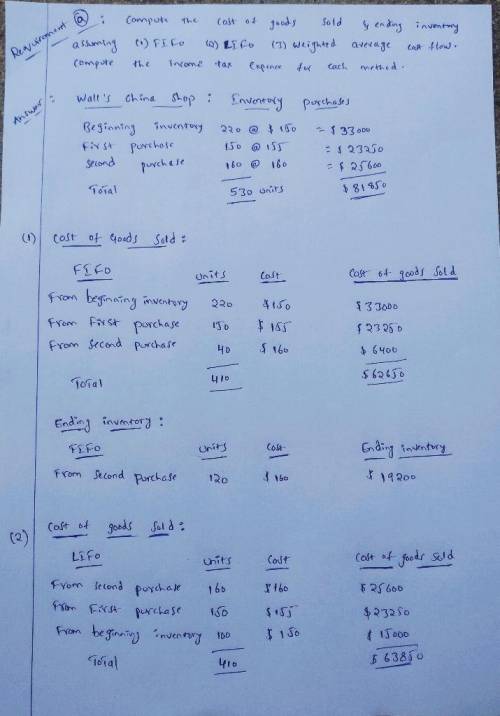 Requirement (a) : Compute the cost of goods sold & ending inventory
assuming (1) FIFO (2) LIFO (3) weighted average cost flow.
compute the income tax expense for each method.
Answer : Wall's China Shop : Inventory purchases
Beginning inventory 220 @ $150 = $33000
First purchase 150 @ 155 = $23250
second purchase 160 @ 160 = $25600
Total 530 units $81850
(1) Cost of Goods Sold :
FIFO units Cost Cost of goods Sold
From beginning inventory 220 $150 $33000
From First purchase 150 $155 $23250
From Second purchase 40 $160 $6400
Total 410 $62650
Ending inventory :
FIFO units Cost Ending inventory
From second purchase 120 $160 $19200
(2) Cost of goods Sold :
LIFO units Cost Cost of goods Sold
From second purchase 160 $160 $25600
From First purchase 150 $155 $23250
From beginning inventory 100 $150 $15000
Total 410 $63850